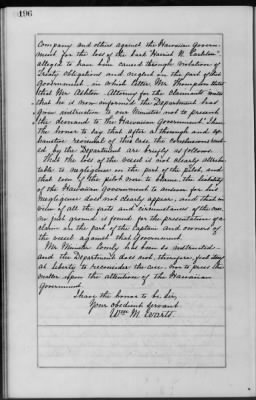 196
Company and others against the Hawaiian Govern-
ment for the loss of the bark Harriet N. Carlton
alleged to have been caused through violation of
Treaty obligations and neglect on the part of that
Government in which letter Mr Thompson states
that Mr Ashton Attorney for the claimants writes
that he is now informed the Department has
given instruction to our Minister not to present
the demands to the Hawaiian Government. I have
the honor to say that after a thorough and ex-
haustive reversal of the case, the conclusions reach-
ed by the Department are briefly as follows:
That the loss of the vessel is not clearly attribu-
table to negligence on the part of the pilot, and
that even if the pilot were to blame, the liability
of the Hawaiian Government to answer for his
negligence does not clearly appear, and that in
view of all the facts and circumstances of the case,
no just ground is found for the presentation of a
claim on the part of the Captain and owners of
the vessel against that Government.
Mr Minister Comly has been so instructed
and the Department does not, therefore, feel itself
at liberty to reconsider the case, nor to press the
matter upon the attention of the Hawaiian
Government.
I have the honor to be Sir,
Your obedient servant
Wm M. Evarts.